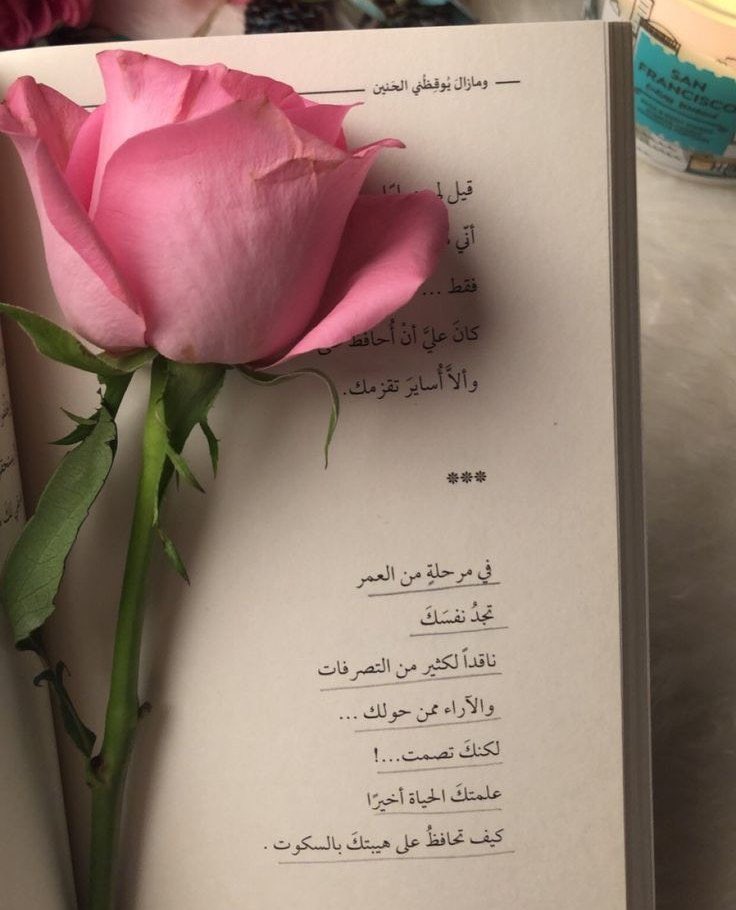 ومازالَ يُوقِظُني الحَنين
قيل
أنّي
فقط ...
كانَ عليَّ أنْ أُحافظَ
وألاَّ أُسايرَ تقزمك.
***
في مرحلةٍ من العمر
تجدُ نفسَكَ
ناقداً لكثير من التصرفات
والآراء ممن حولك ...
لكنكَ تصمت...!
علمتكَ الحياة أخيرًا
كيف تحافظُ على هيبتكَ بالسكوت .
SAN
FRANCISCO